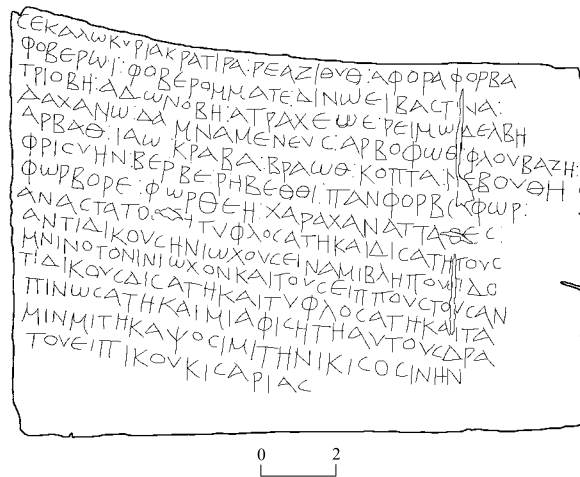 ϹΕΚΑΛΩΚΥΡΙΑΚΡΑΤΙΡΑ:ΡΕΑΖΙΘΥΘ:ΑΦΟΡΑΦΟΡΒΑ
ΦΟΒΕΡΩΙ:ΦΟΒΕΡΟΜΜΑΤΕ:ΔΙΝΩΕΙΒΑϹΤΙΝΑ:
ΤΡΙΟΒΗ:ΑΔΩΝΟΒΗ:ΑΤΡΑΧΕΩΕ:ΡΕΙΜΩΔΕΛΒΗ
ΔΑΧΑΝΩ:ΔΑΜΝΑΜΕΝΕΥϹ:ΑΡΒΟΦΩΘ:ΦΛΟΥΒΑΖΗ:
ΑΡΒΑΘ:ΙΑΩ:ΚΡΑΒΑ:ΒΡΑΩΘ:ΚΟΠΤΑ:ΝΕΒΟΥΘΗ:
ΦΡΙϹΥΗΝΒΕΡΒΕΡΗΒΕΘΘΙ:ΠΑΝΦΟΡΒϹ:ΦΩΡ:
ΦΩΡΒΟΡΕ:ΦΩΡΘΕΗ:ΧΑΡΑΧΑΝΑΤΤΑ
ΑΝΑϹΤΑΤΟ ΤΥΦΛΟϹΑΤΗΚΑΙΔΙϹΑΤΗΤΟΥϹ
ΑΝΤΙΔΙΚΟΥϹΗΝΙΩΧΟΥϹΕΙΝΑΜΙΒΛΗΠΟΥϹΙΔΟ
ΜΝΙΝΟΤΟΝΙΝΙΩΧΟΝΚΑΙΤΟΥϹΕΙΠΠΟΥϹΤΟΥϹΑΝ
ΤΙΔΙΚΟΥϹΔΙϹΑΤΗΚΑΙΤΥΦΛΟϹΑΤΗΚΑΙΤΑ
ΠΙΝΩϹΑΤΗΚΑΙΜΙΑΦΙϹΗΤΗΑΥΤΟΥϹΔΡΑ
ΜΙΝΜΙΤΗΚΑΨΟϹΙΜΙΤΗΝΙΚΙϹΟϹΙΝΗΝ
ΤΟΥΕΙΠΙΚΟΥΚΙϹΑΡΙΑϹ
0 2